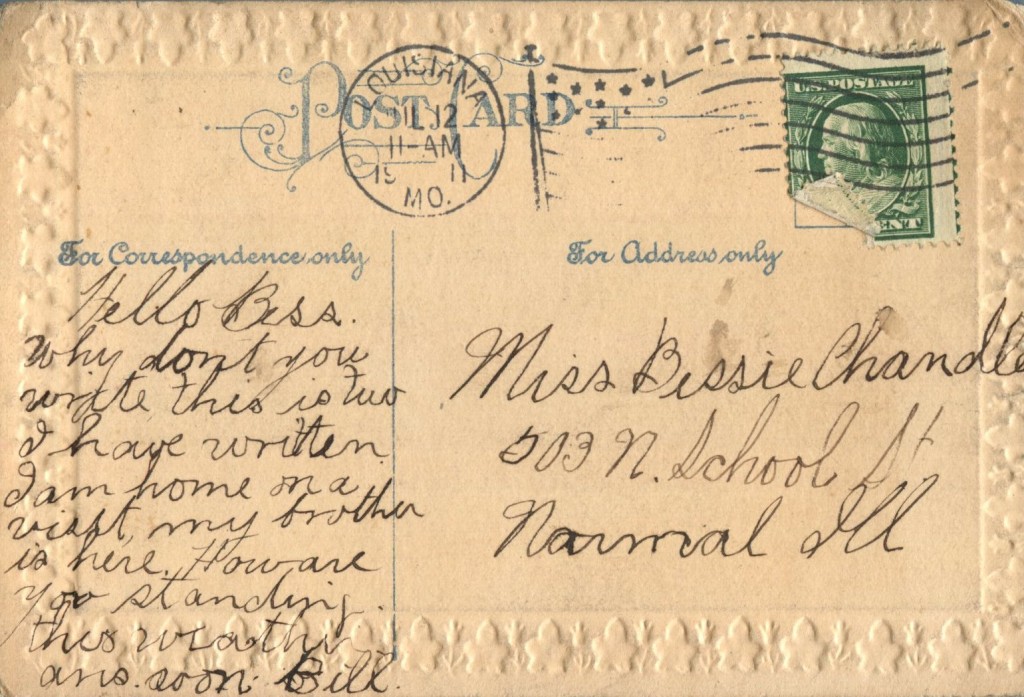 POST CARD
LOUISIANA
JUL 12
11-AM
1911
MO.
U.S. POSTAGE
CENT
For Correspondence only
For Address only
Hello Bess.
why dont you
write this is two
I have written
I am home on a
visit, my brother
is here. How are
you standing
this weather
ans. soon. Bill.
Miss Bessie Chandle
503 N. School St
Normal Ill